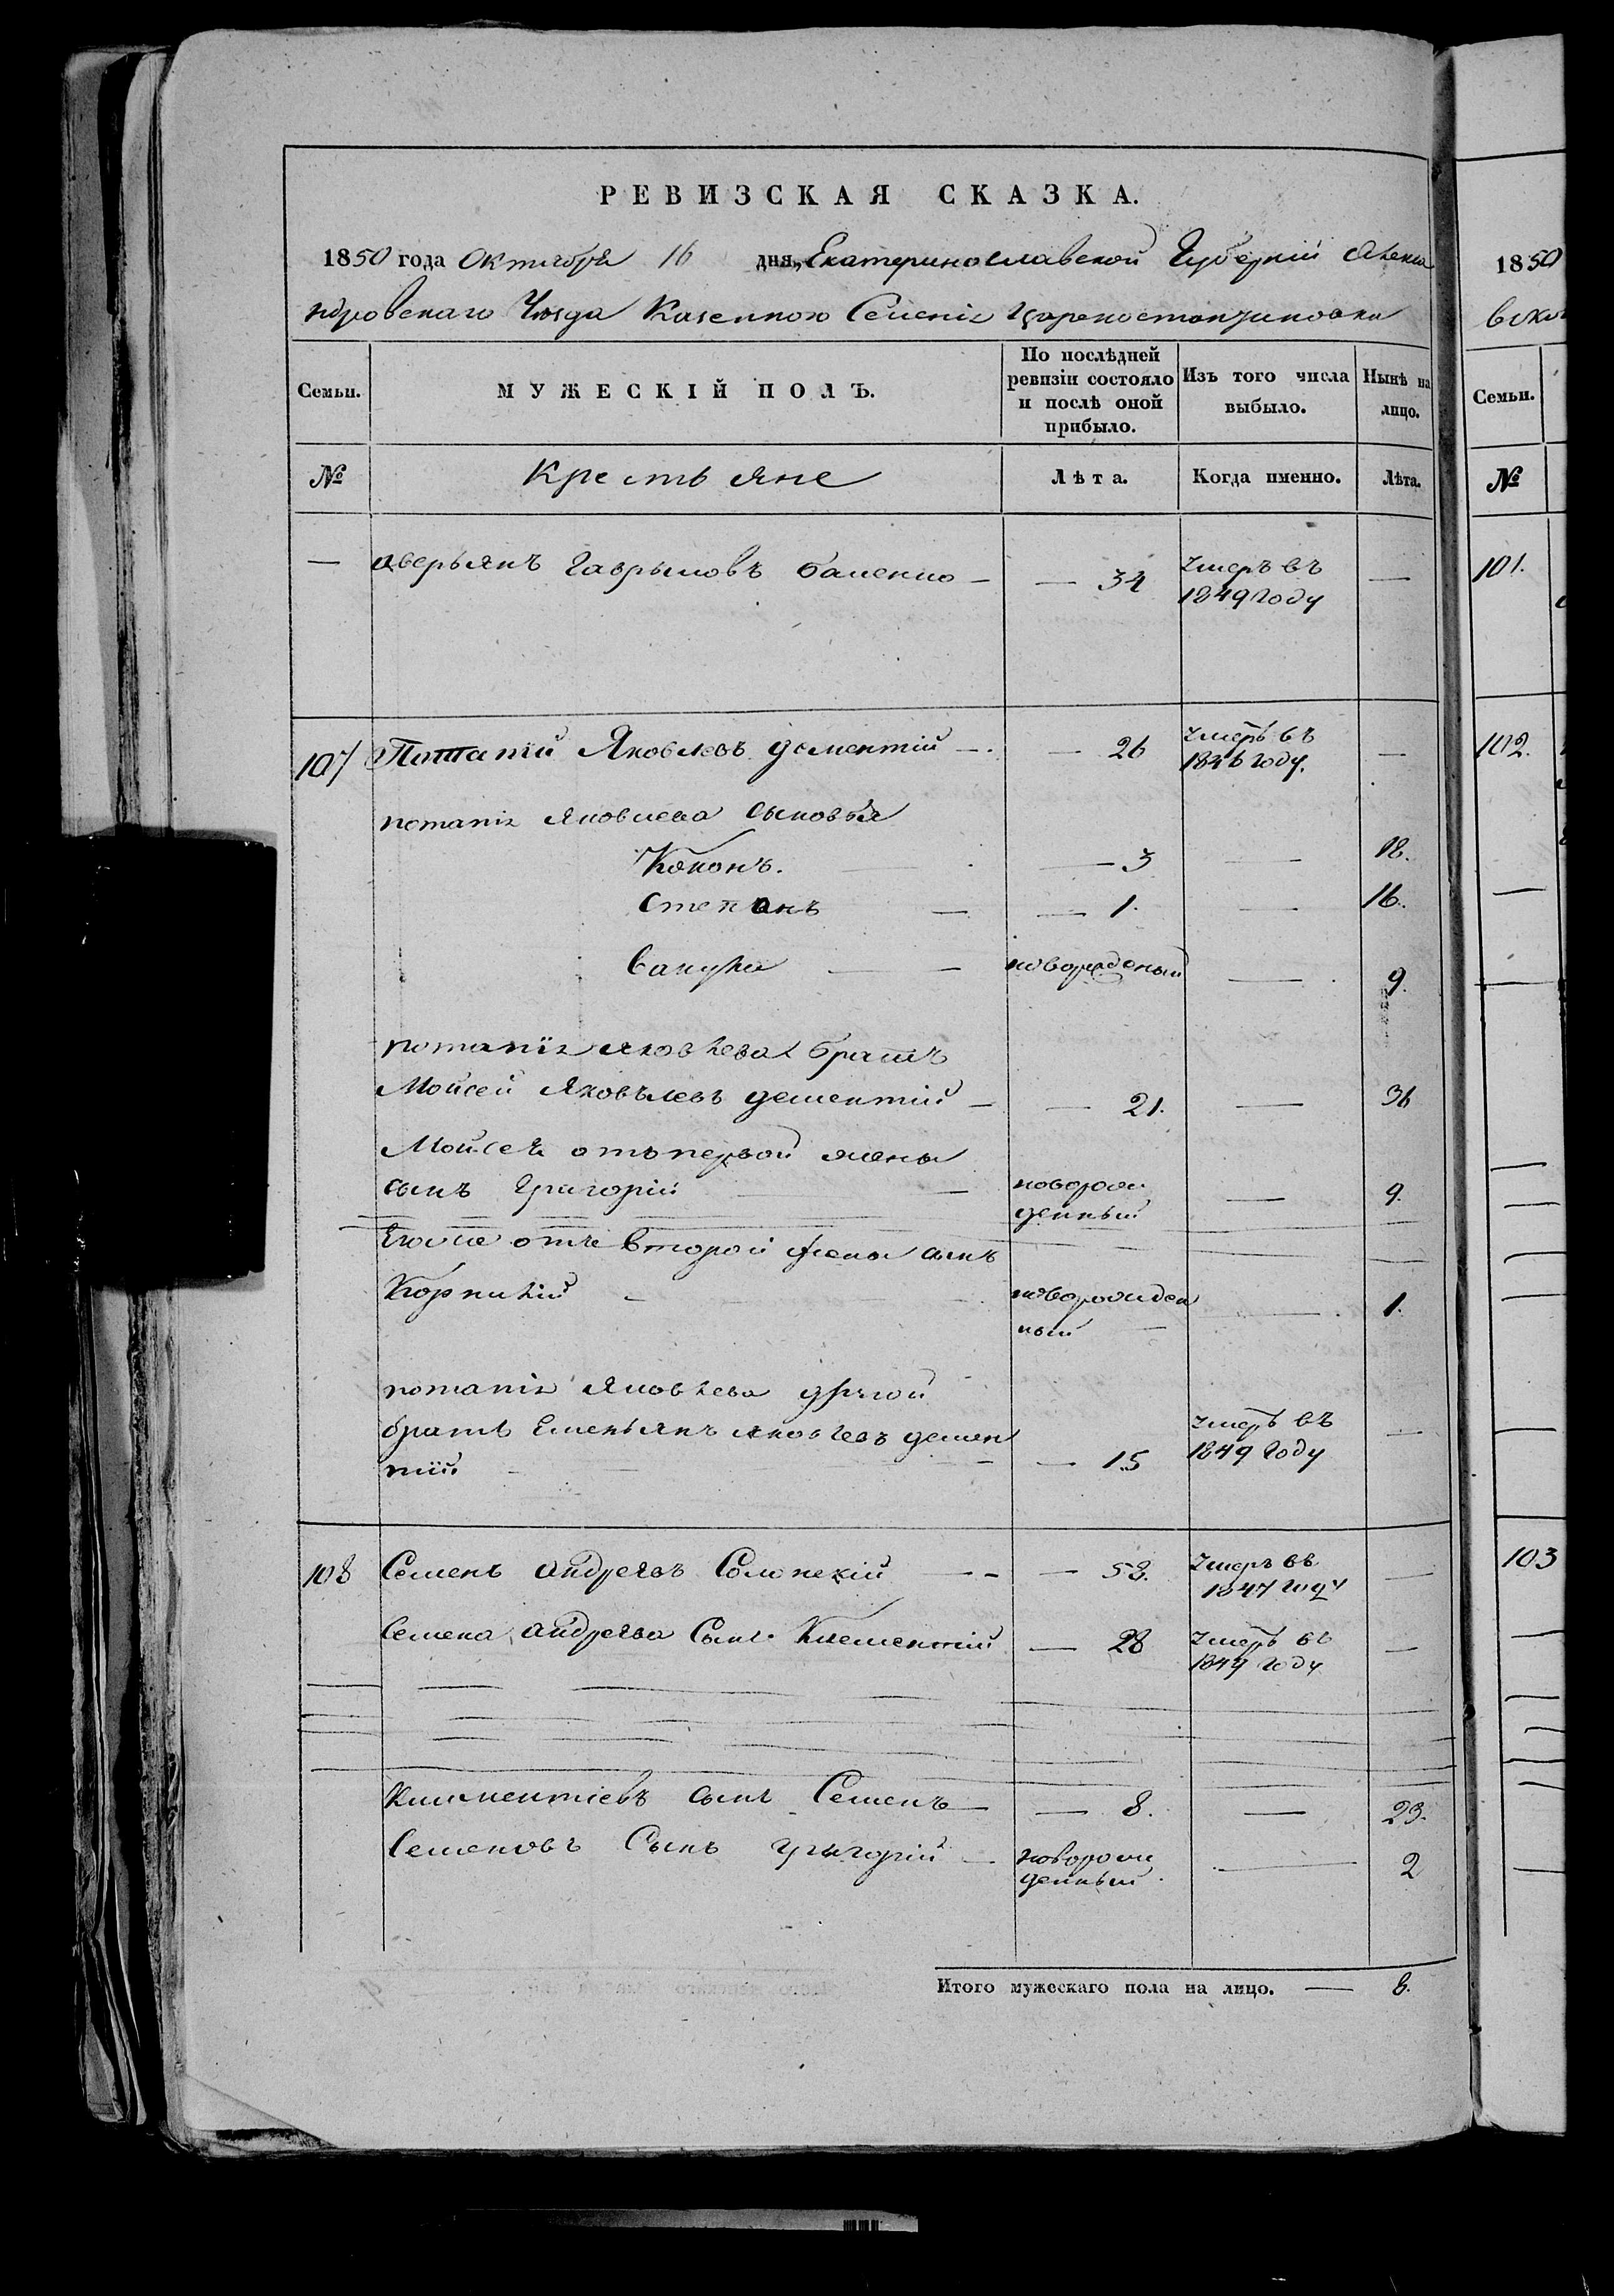 РЕВИЗСКАЯ СКАЗКА.
1850 года Октября 16 дня, Екатеринославской Губернiи Алекса
ндровскаго Уезда Казенного Селенiя Цареконстантиновки
Семьи. МУЖЕСКIЙ ПОЛЪ. По послѣдней ревизiи состояло и послѣ оной прибыло. Изъ того числа выбыло. Нынѣ на лицо.
№ Крестьяне Лѣта. Когда именно. Лѣта.
— аверьянъ гаврыловъ — 34 умеръ въ 1849 году —
107 Потапiй Яковлевъ дементiй — 26 умеръ въ 1846 году. —
потапiя яковлева сыновья
Кононъ. — 3 — 18.
степанъ — 1. — 16.
вакула — новорожденый — 9.
потапiя яковлева братъ
Мойсей Яковълевъ дементiй — 21. — 36
Мойсея отъ первой жены
сынъ Григорiй — новорож денный — 9.
Егоже отъ второй жены сынъ
Корнилiй — новорожден ный — 1.
потапiя Яковлева другой
братъ Емельянъ яковлевъ демен
тiй — 15 умеръ въ 1849 году —
108 Семенъ андреевъ — 58. умеръ въ 1847 году —
Семена андреева Сынъ Клементiй — 28 умеръ въ 1849 году —
климентiевъ сынъ Семенъ — 8. — 23.
Семеновъ Сынъ григорiй — новорож денный. — 2
Итого мужескаго пола на лицо. — 8.
1850
Семьи.
№
101.
102.
103